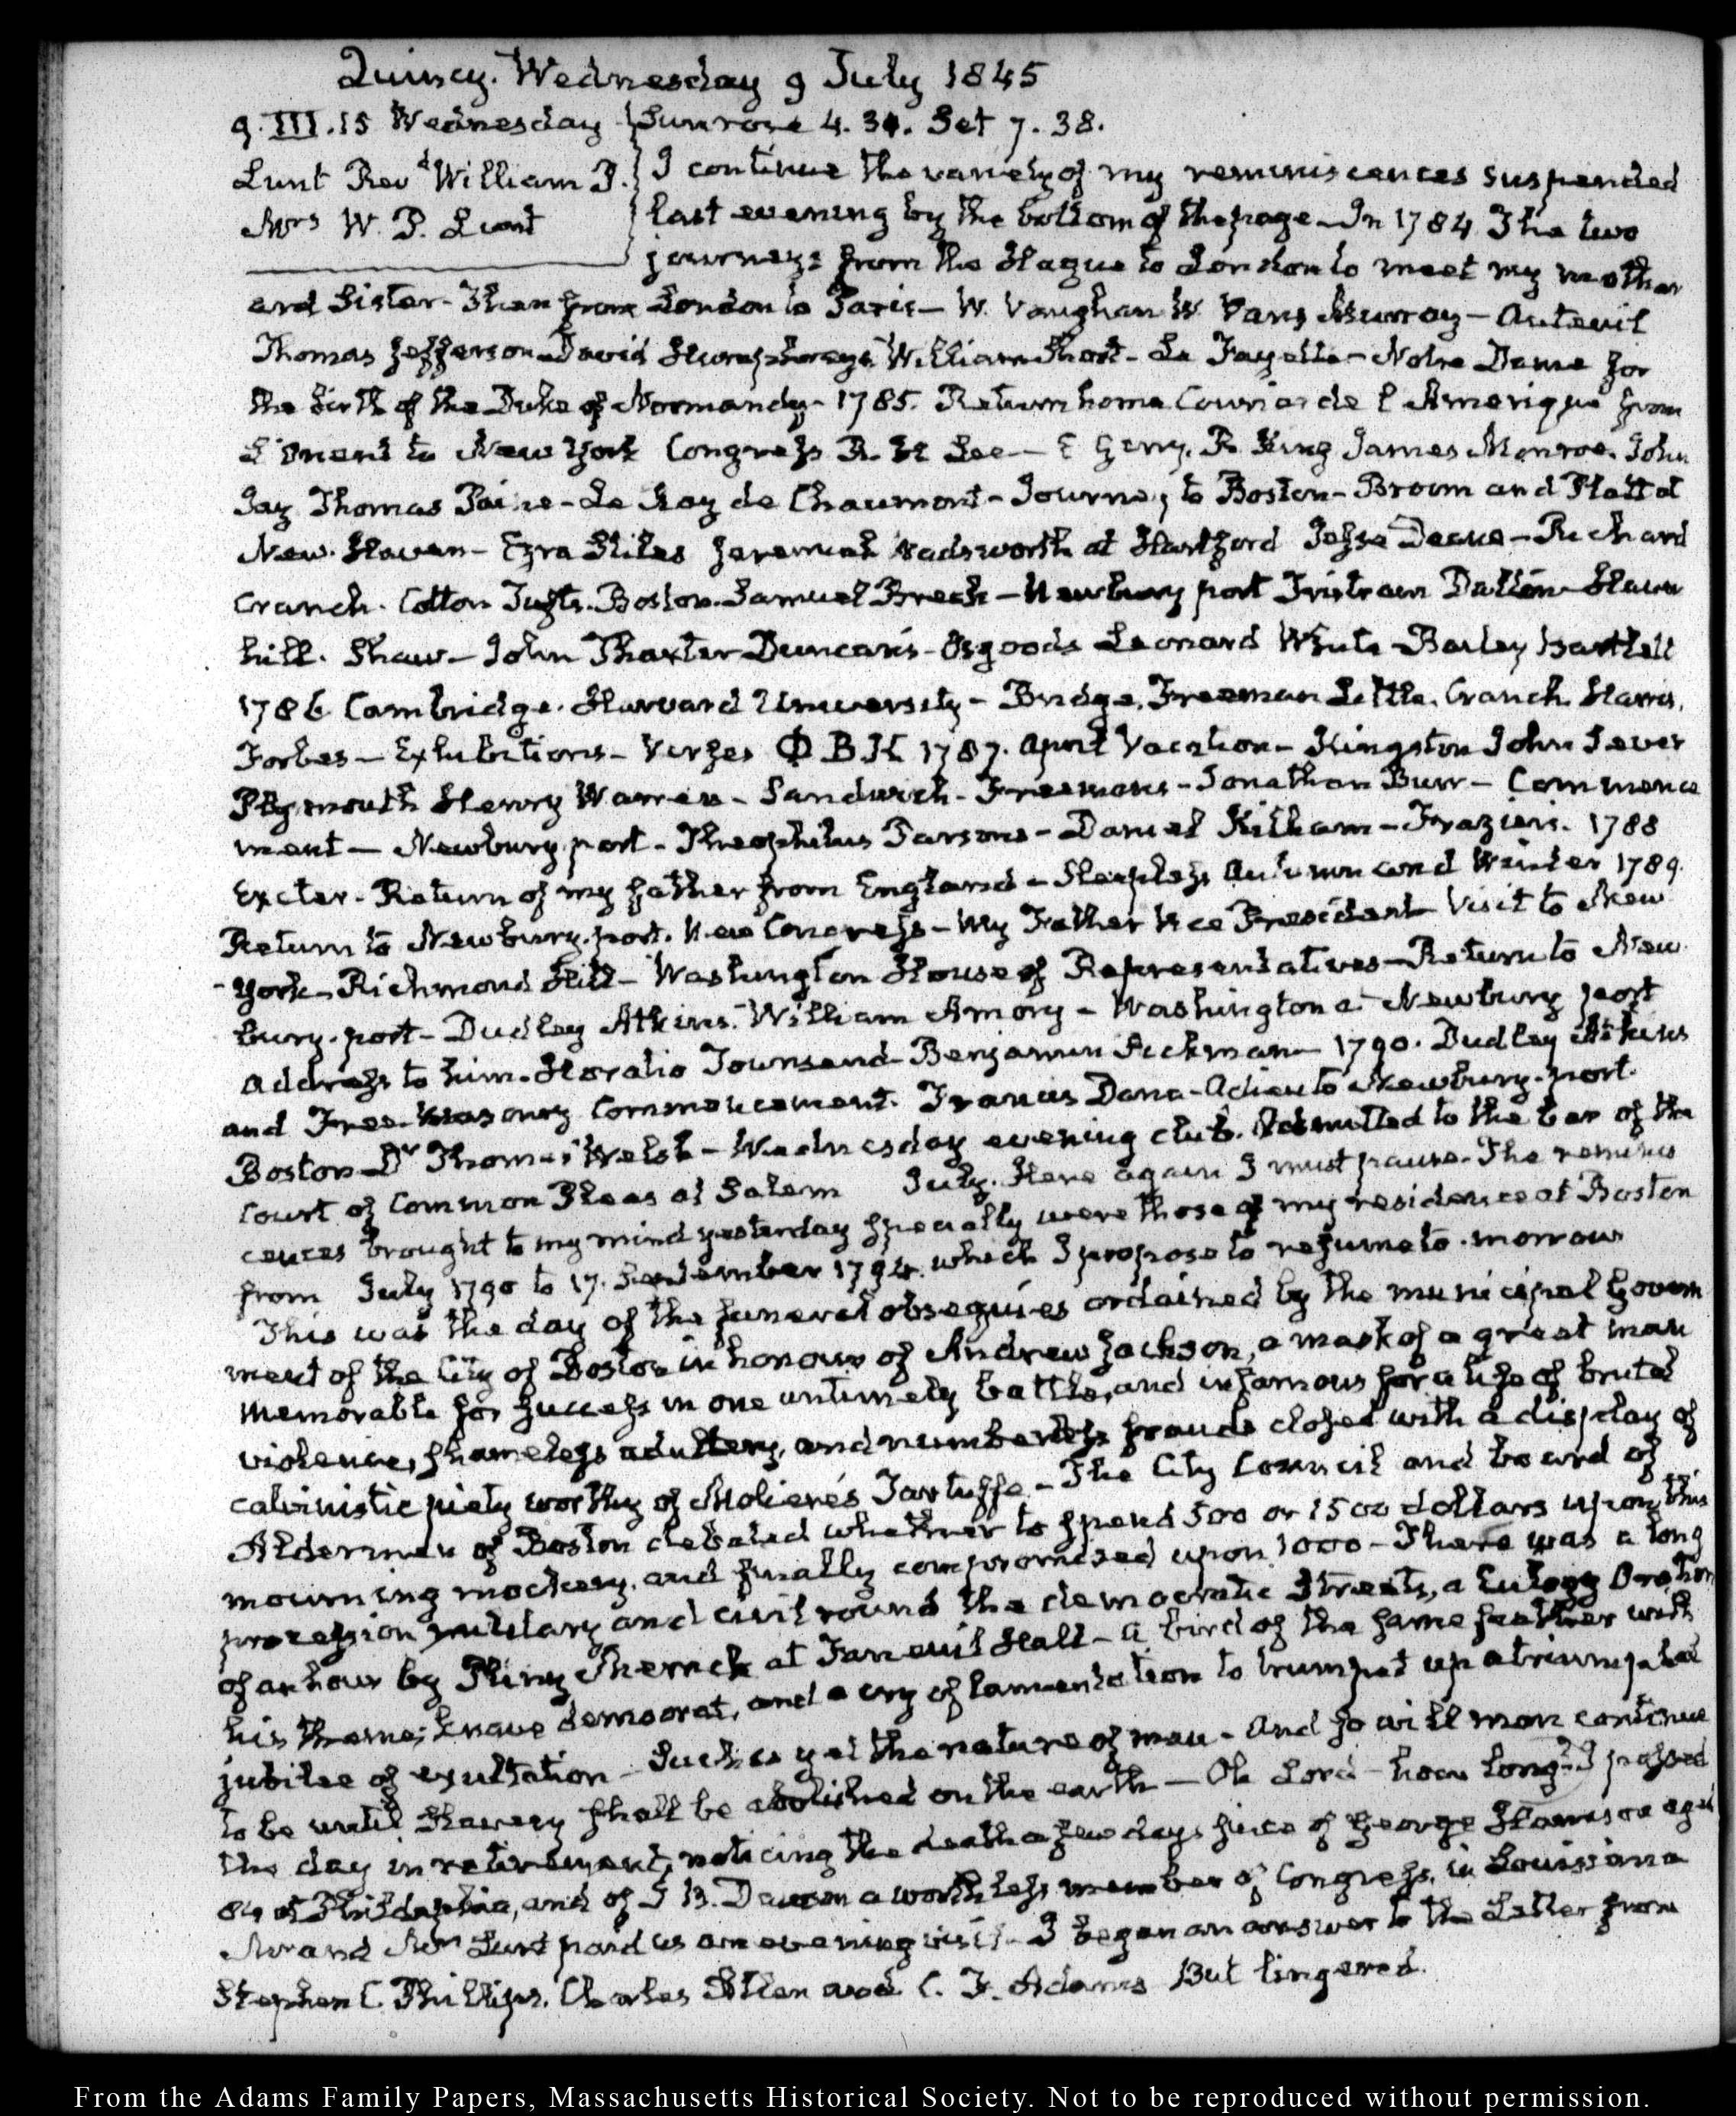 Quincy. Wednesday 9 July 1845
9. III. 15 Wednesday Sunrose 4. 30. Set 7. 38.
Lunt Rev.d William P. I continue the variety of my reminiscences suspended
Mrs W. P. Lunt last evening by the bottom of the page – In 1784 The two
journeys from the Hague to London to meet my mother
and Sister – Then from London to Paris – W. Vaughan W. Vans Murray – Auteuil
Thomas Jefferson – David Humphreys William Short – La Fayette – Notre Dame for
the birth of the Duke of Normandy – 1785. Return home Courier de l'Amerique from
L'Orient to New York Congress R. H. Lee – E Gerry. R. King James Monroe. John
Jay Thomas Paine – Le Ray de Chaumont – Journey to Boston – Broom and Platt at
New. Haven – Ezra Stiles Jeremiah Wadsworth at Hartford Jesse Deane – Richard
Cranch. Cotton Tufts. Boston. Samuel Breck – Newbury port Tristram Dalton – Haver
hill. Shaw – John Thaxter Duncan's – Osgoods Leonard White – Bailey Bartlett
1786. Cambridge. Harvard University – Bridge. Freeman Little. Cranch. Harris.
Forbes – Exhibitions – Verses Φ.B.K. 1787. April Vacation – Kingston John Sever
Plymouth Henry Warren – Sandwich – Freemans – Jonathan Burr – Commence
ment – Newbury port – Theophilus Parsons – Daniel Kilham – Fraziers. 1788
Exeter – Return of my father from England – Sleepless Autumn and Winter 1789.
Return to Newbury. port. New Congress – My Father Vice President Visit to New
York – Richmond Hill – Washington House of Representatives – Return to New
bury. port – Dudley Atkins. William Amory – Washington at Newbury port
address to him – Horatio Townsend – Benjamin Pickman – 1790. Dudley Atkins
and Free-Masonry Commencement. Francis Dana – Adieu to Newbury. port.
Boston – Dr Thomas Welsh – Wednesday evening club. Admitted to the bar of the
Court of Common Pleas at Salem July. Here again I must pause. The reminis
cences brought to my mind yesterday specially were those of my residence at Boston
from July 1790 to 17. September 1794. which I propose to resume to-morrow
This was the day of the funeral obsequies ordained by the municipal Govern
ment of the City of Boston in honour of Andrew Jackson, a mask of a great man
memorable for success in one untimely battle, and infamous for a life of brutal
violence, shameless adultery, and numberless frauds closed with a display of
calvinistic piety worthy of Moliere's Tartuffe – The City Council and board of
Aldermen of Boston debated whether to spend 500 or 1500 dollars upon this
mourning mockery. and finally compromised upon 1000 – There was a long
procession military and civil round the democratic Streets, a Eulogy Oration
of an hour by Pliny Merrick at Faneuil Hall – a bird of the same feather with
his theme; knave democrat, and a cry of lamentation to trumpet up a triumphal
jubilee of exultation – Such is yet the nature of man – And so will man continue
to be until Slavery shall be abolished on the earth – Oh Lord – how long? I passed
the day in retirement, noticing the death a few days since of George Harrison aged
84 at Philadelphia, and of J B. Dawson a worthless member of Congress, in Louisiana
Mr and Mrs Lunt paid us an evening visit – I began an answer to the Letter from
Stephen C. Phillips, Charles Allen and C. F. Adams But lingered.
From the Adams Family Papers, Massachusetts Historical Society. Not to be reproduced without permission.